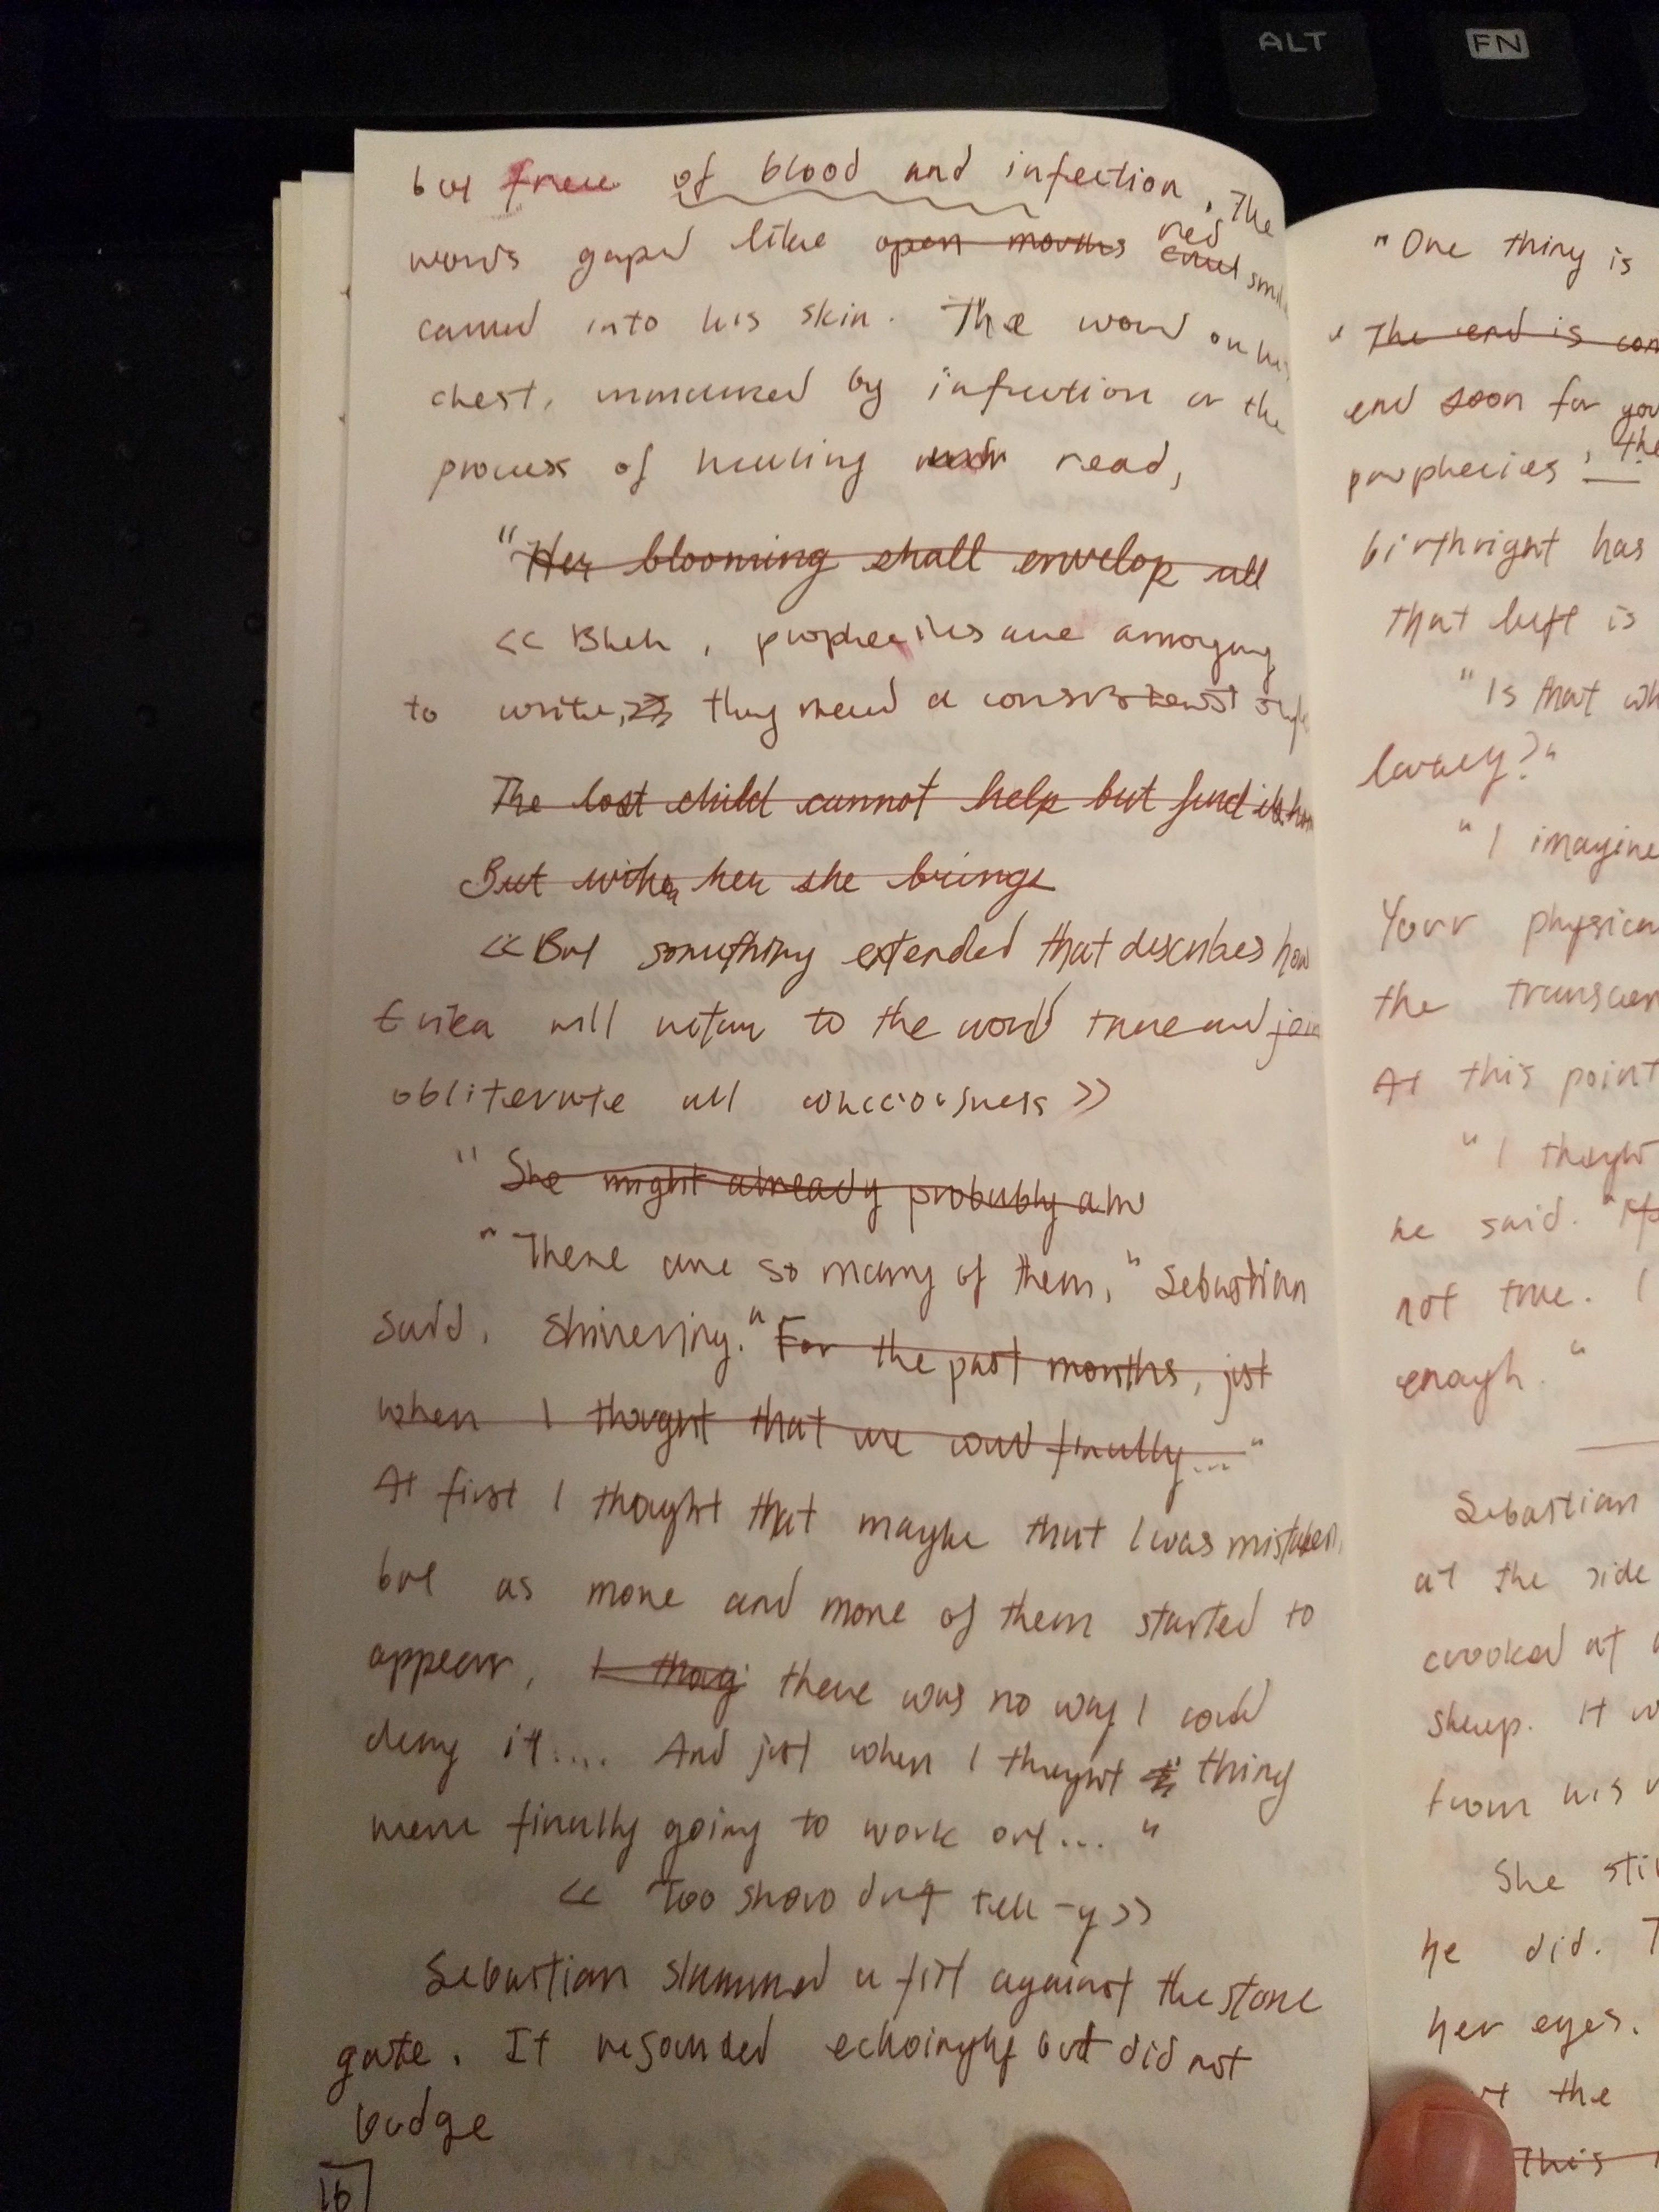 ALT
FN
but free of blood and infection. The
words gaped like open mouths red smil
carved into his skin. The word on his
chest, immured by infection or the
process of healing read,
"Her blooming shall envelop all
<< Bleh, prophecies are annoying
to write, they need a consistent style
The lost child cannot help but find its hom
But when her she brings
<<But something extended that describes how
Erika will return to the word tree and join
obliterate all concciosness >>
"She might already probably am
"There are so many of them," Sebastian
said, shivering. "For the past months, jist
when I thoght that we woud finally..."
At first I thoyght that maybe that I was mistaken,
but as more and more of them started to
appear, I thoug there was no way I could
deny it.... And jist when I thoyght thing
were finally going to work out... "
<< Too show dnt tell-y>>
Sebastian slammed a fist against the stone
gate. It resounded echoingly but did not
budge
16
"One thing is
"The end is com
end soon for you
porphecies, the
birthright has
that left is
"Is that wh
"I imagine
Your physica
the transcen
At this point
"I thoyght
he said. "
not true. I
enoygh."
Sebastian
at the side
crooked at a
sheep. It w
from his
She sti
he did. T
her eyes.
the
This